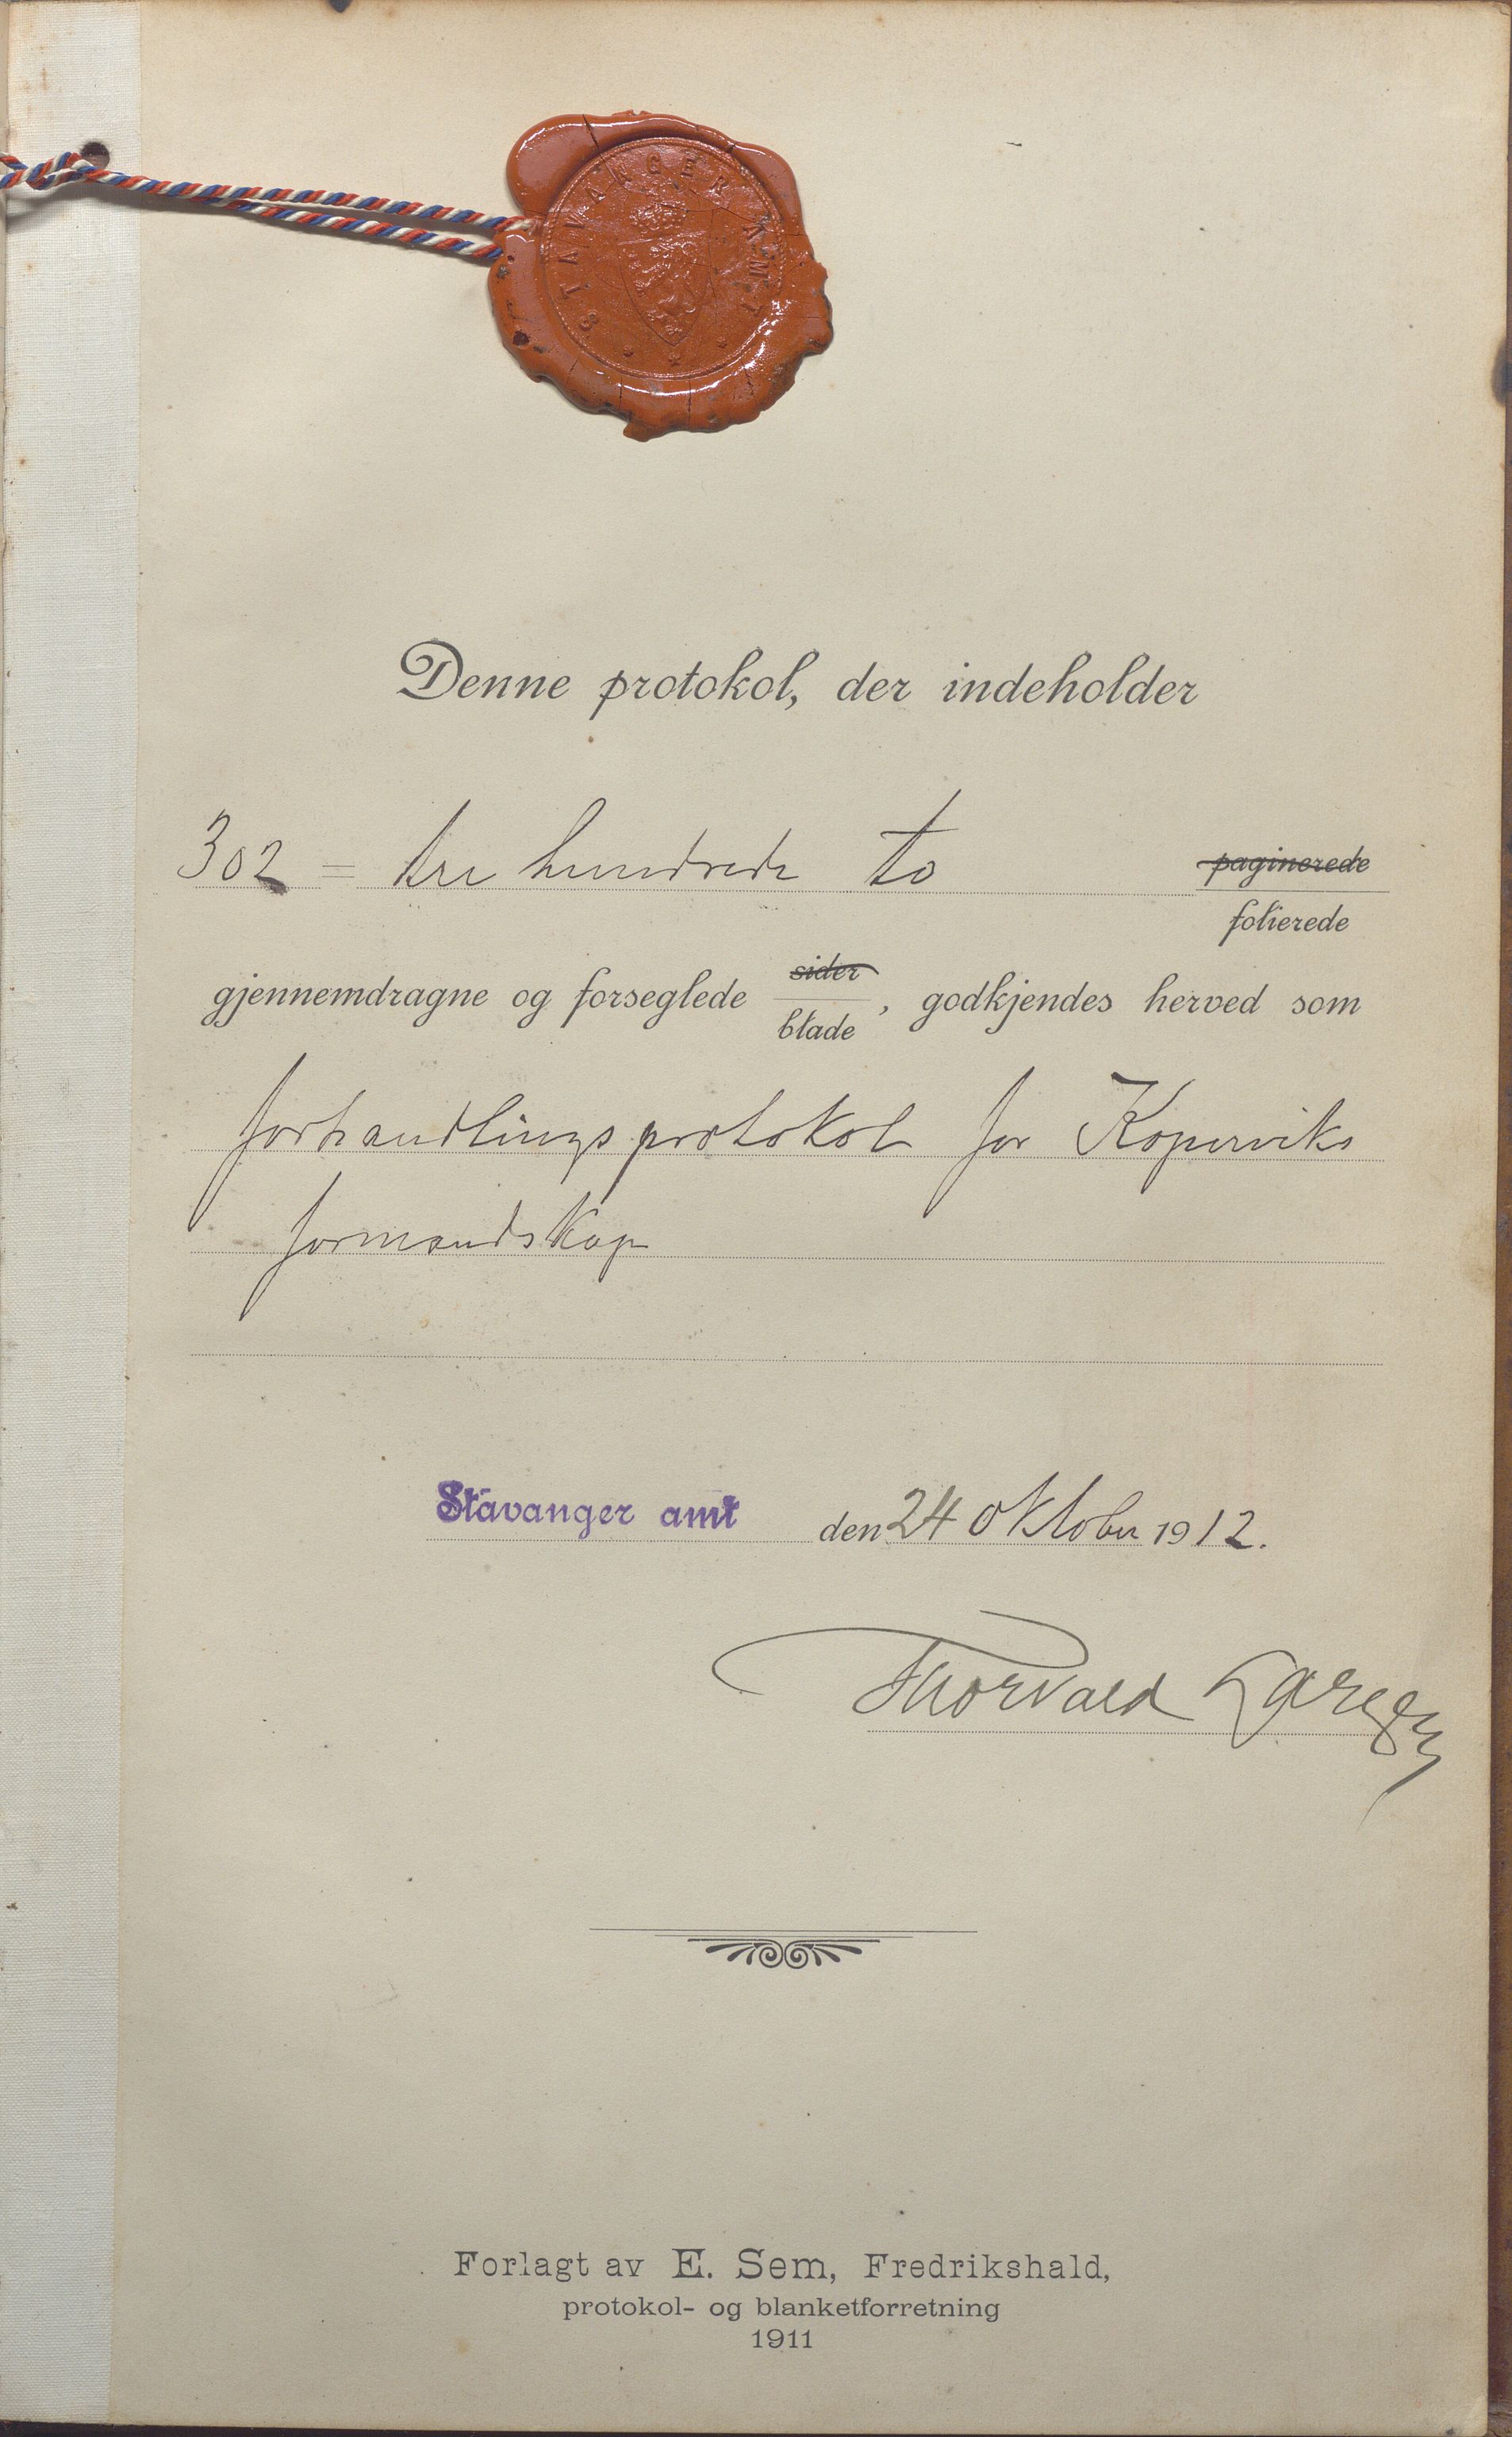 STAVANGER AMT
Denne protokol, der indeholder
302 = tre hundrede to paginerede
folierede
gjennemdragne og forseglede sider blade, godkjendes herved som
forhandlingsprotokol for Koperviks
formandskap
Stavanger amt den 24 oktober 1912.
Thorvald Larsen
Forlagt av E. Sem, Fredrikshald,
protokol- og blanketforretning
1911